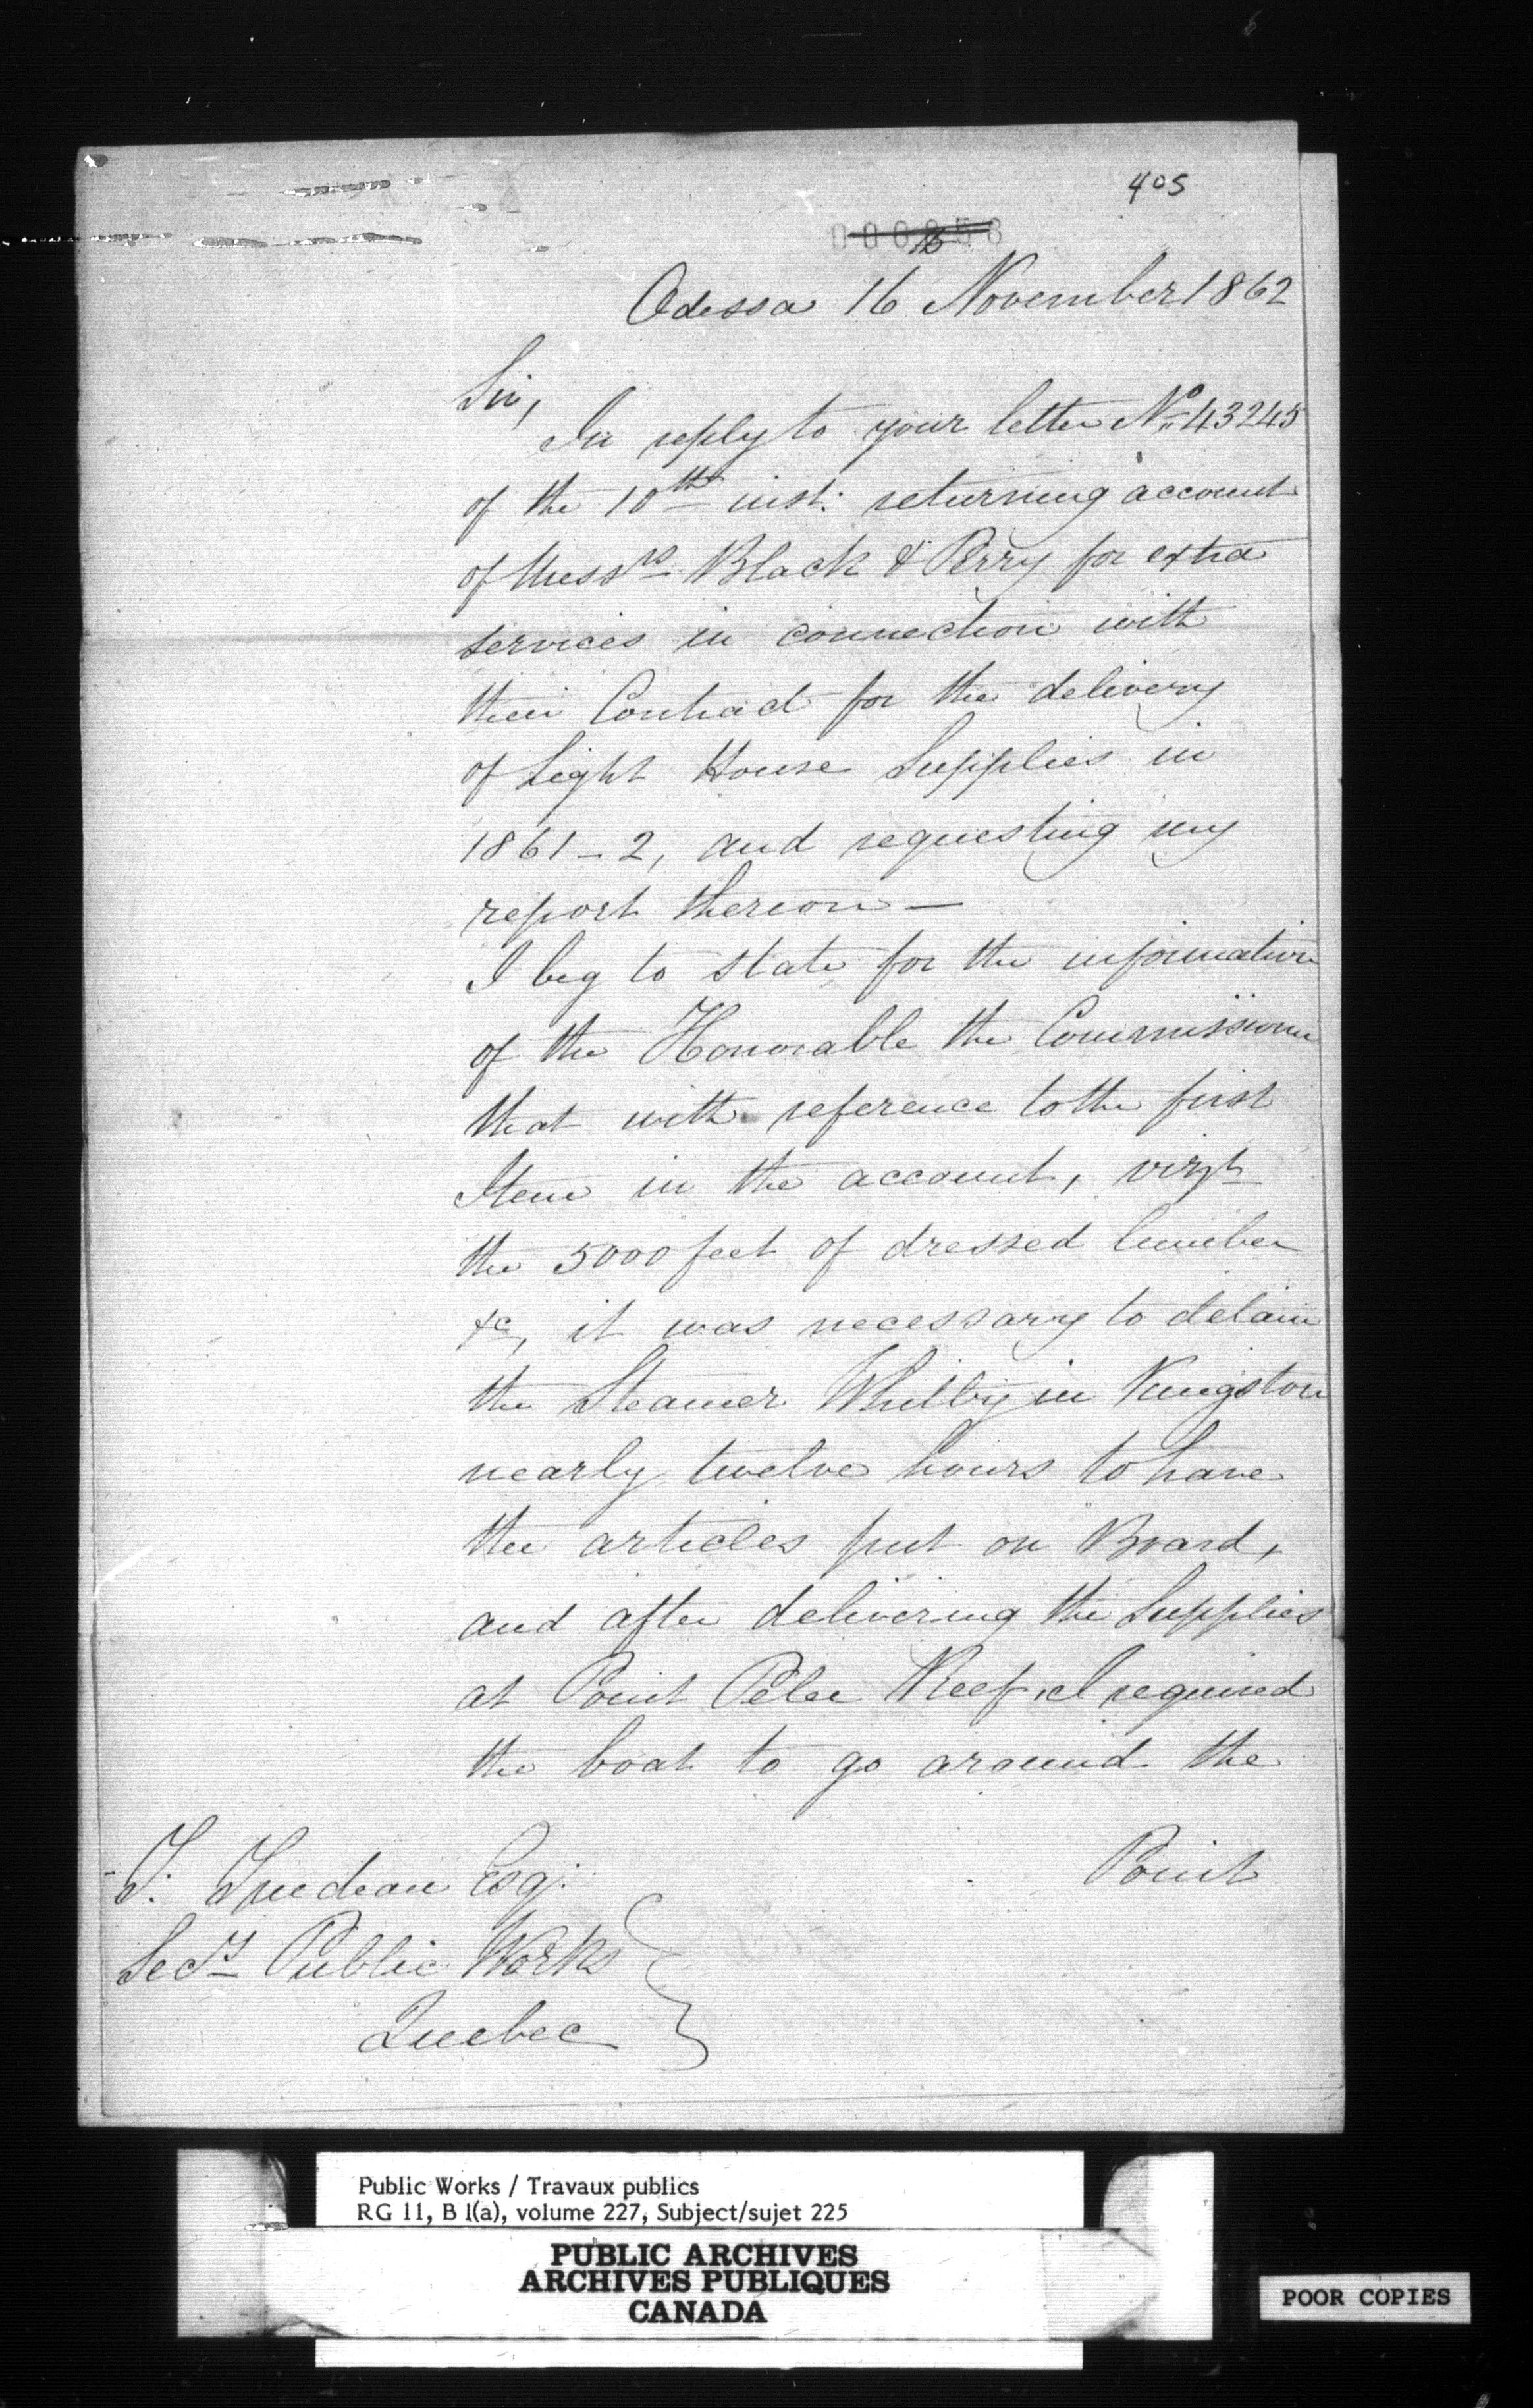 405
Odessa 16 November 1862
Sir,
In reply to your letter No. 43245
of the 10th inst: returning account
of Messrs Black & Perry for extra
services in connection with
their Contract for the delivery
of Light House Supplies in
1861-2, and requesting my
report thereon —
I beg to state for the information
of the Honorable the Commissioner
that with reference to the first
Item in the account, vizt
the 5000 feet of dressed lumber
&c, it was necessary to detain
the Steamer Whitby in Kingston
nearly twelve hours to have
the articles put on Board,
and after delivering the Supplies
at Point Pelee Reef, I required
the boat to go around the
Point
T. Trudeau Esq.
Secy Public Works
Quebec
Public Works / Travaux publics
RG 11, B 1(a), volume 227, Subject/sujet 225
PUBLIC ARCHIVES
ARCHIVES PUBLIQUES
CANADA
POOR COPIES